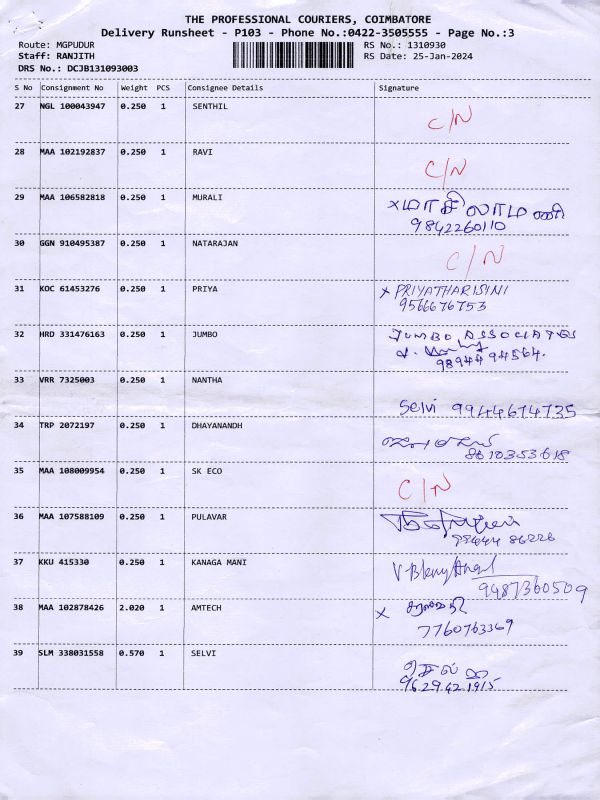 THE PROFESSIONAL COURIERS, COIMBATORE
Delivery Runsheet - P103 - Phone No.:0422-3505555 - Page No.:3
Route: MGPUDUR RS No.: 1310930
Staff: RANJITH RS Date: 25-Jan-2024
DRS No.: DCJB131093003
S No Consignment No Weight PCS Consignee Details Signature
27 NGL 100043947 0.250 1 SENTHIL C/N
28 MAA 102192837 0.250 1 RAVI C/N
29 MAA 106582818 0.250 1 MURALI x மாசிலாமணி
9842260110
30 GGN 910495387 0.250 1 NATARAJAN C/N
31 KOC 61453276 0.250 1 PRIYA x PRIYATHARISINI
9566676753
32 HRD 331476163 0.250 1 JUMBO JUMBO ASSOCIATES
98944 94564.
33 VRR 7325003 0.250 1 NANTHA
Selvi 9944674735
34 TRP 2072197 0.250 1 DHAYANANDH
8610353618
35 MAA 108009954 0.250 1 SK ECO C/N
36 MAA 107588109 0.250 1 PULAVAR
86226
37 KKU 415330 0.250 1 KANAGA MANI
9487360509
38 MAA 102878426 2.020 1 AMTECH x
7760763369
39 SLM 338031558 0.570 1 SELVI செல்வி
9629421915